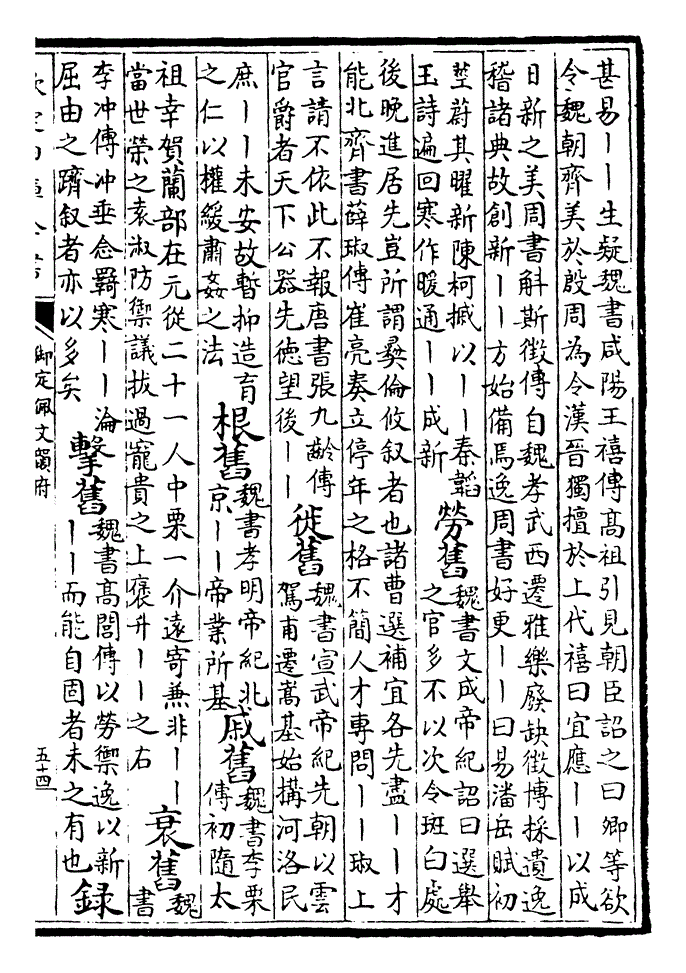 甚易丨丨生疑魏書咸陽王禧傳高祖引見朝臣詔之曰卿等欲
令魏朝齊美於殷周為令漢晉獨擅於上代禧曰宜應丨丨以成
日新之美周書斛斯徵傳自魏孝武西遷雅樂廢缺徵博採遺逸
稽諸典故創新丨丨方始備焉逸周書好更丨丨曰易潘岳賦初
莖蔚其曜新陳柯槭以丨丨秦韜
玉詩遍回寒作暖通丨丨成新
勞舊
魏書文成帝紀詔曰選舉
之官多不以次令斑白處
後晚進居先豈所謂彝倫攸叙者也諸曹選補宜各先盡丨丨才
能北齊書薛琡傳崔亮奏立停年之格不簡人才專問丨丨琡上
言請不依此不報唐書張九齡傳
官爵者天下公器先徳望後丨丨
徙舊
魏書宣武帝紀先朝以雲
駕甫遷嵩基始構河洛民
庶丨丨未安故暫抑造育
之仁以權緩肅姦之法
根舊
魏書孝明帝紀北
京丨丨帝業所基
戚舊
魏書李栗
傳初隨太
祖幸賀蘭部在元從二十一人中栗一介遠寄兼非丨丨
當世榮之袁淑防禦議拔過寵貴之上褒升丨丨之右
衰舊
魏
書
李冲傳冲垂念羇寒丨丨淪
屈由之躋叙者亦以多矣
擊舊
魏書高閭傳以勞禦逸以新
丨丨而能自固者未之有也
錄
御定佩文韻府
五十四